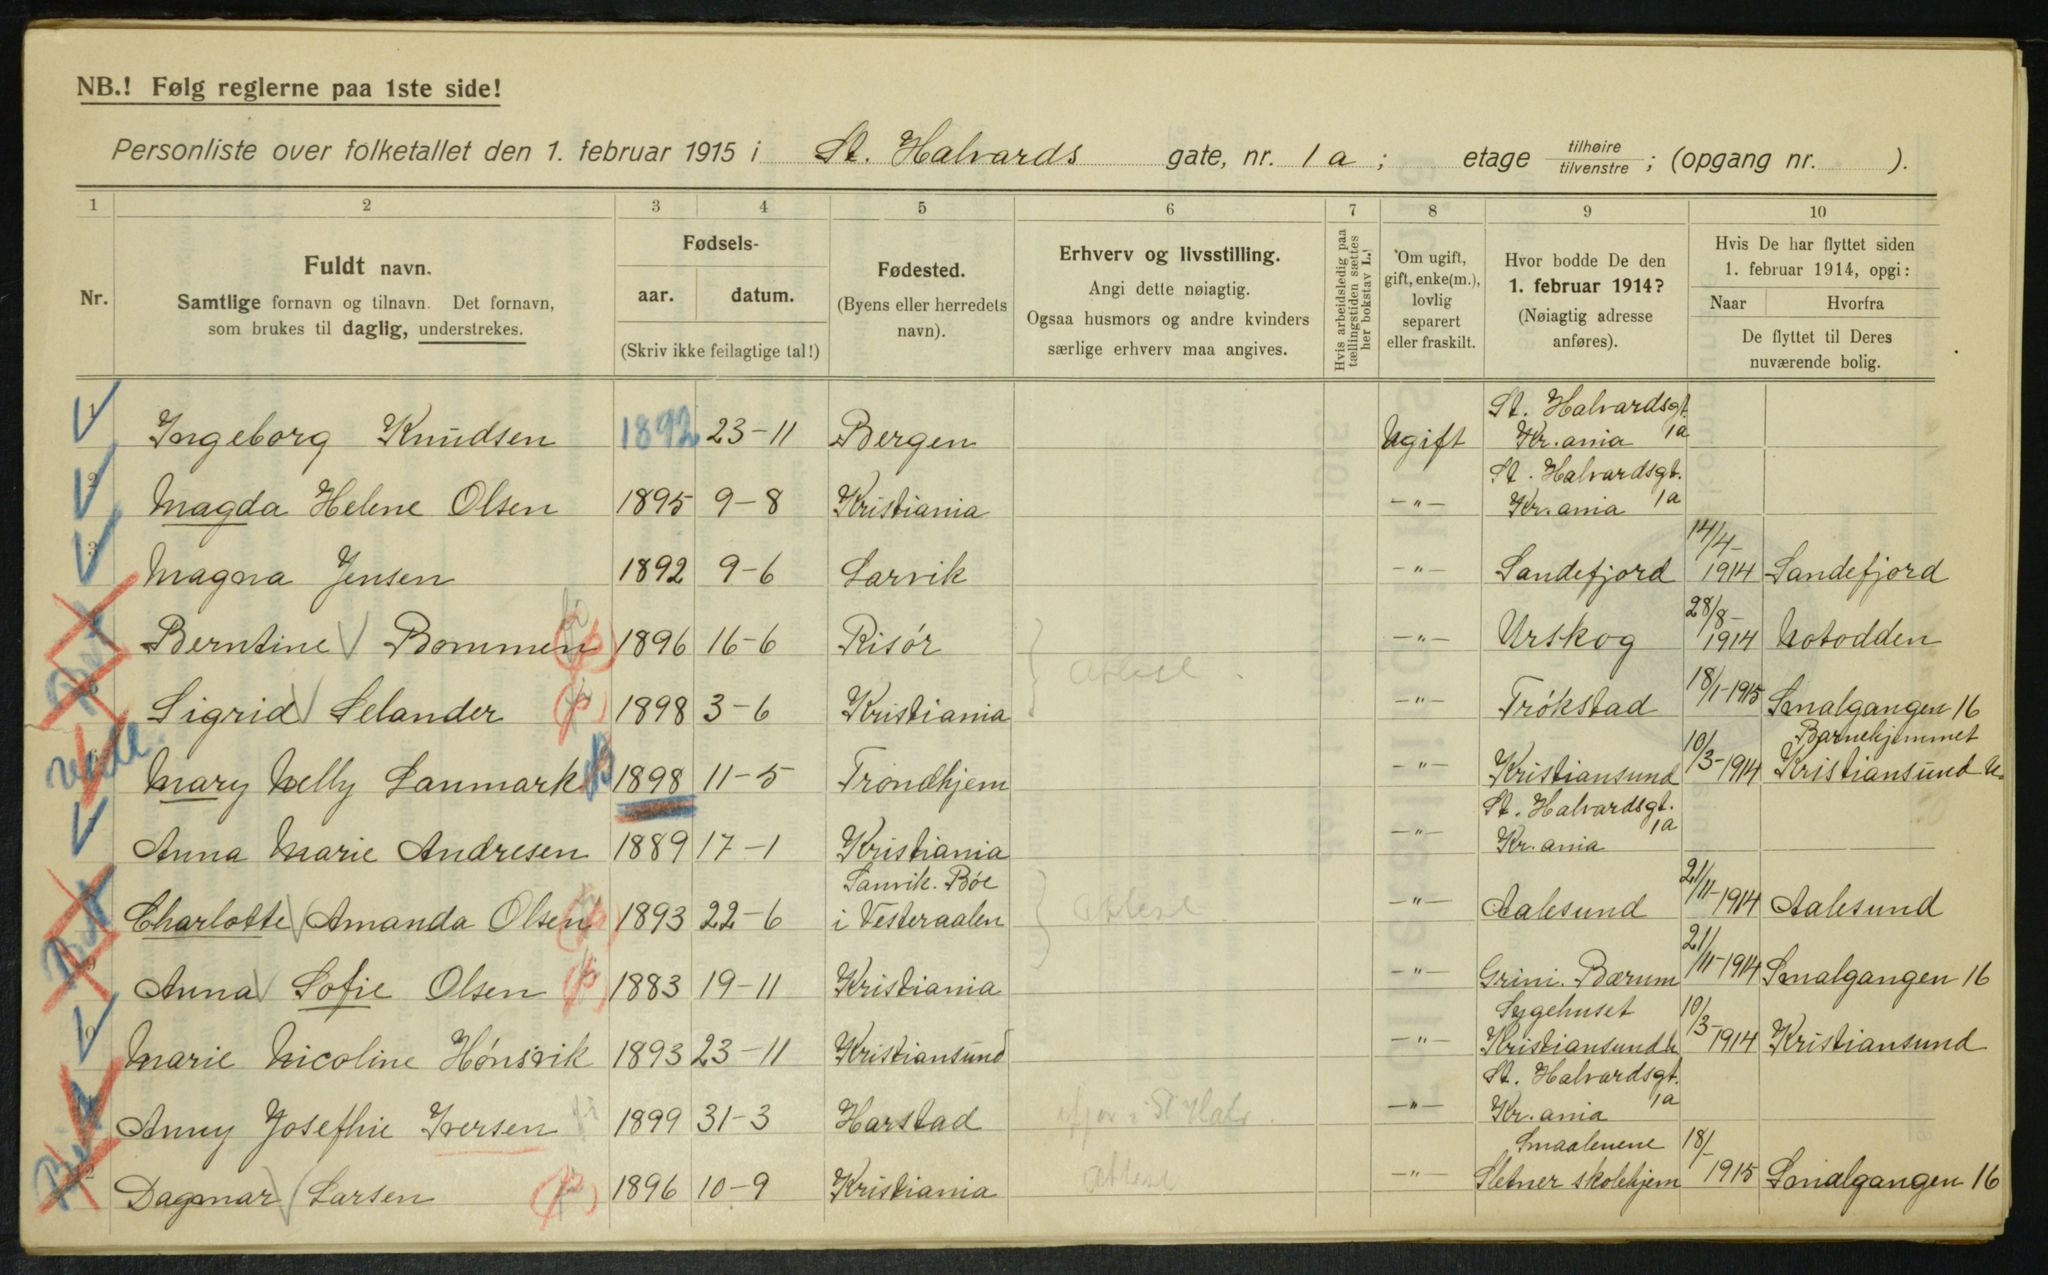 NB.! Følg reglerne paa 1ste side!
Personliste over folketallet den 1. februar 1915 i St. Halvards gate, nr. 1 a ; etage tilhøire / tilvenstre ; (opgang nr. ).
1 2 3 4 5 6 7 8 9 10
Nr.
Fuldt navn.
Samtlige fornavn og tilnavn. Det fornavn,
som brukes til daglig, understrekes.
Fødsels-
aar. datum.
(Skriv ikke feilagtige tal!)
Fødested.
(Byens eller herredets
navn).
Erhverv og livsstilling.
Angi dette nøiagtig.
Ogsaa husmors og andre kvinders
særlige erhverv maa angives.
Hvis arbeidsledig paa
tællingstiden sættes
her bokstav L.!
Om ugift,
gift, enke(m.),
lovlig
separert
eller fraskilt.
Hvor bodde De den
1. februar 1914?
(Nøiagtig adresse
anføres).
Hvis De har flyttet siden
1. februar 1914, opgi:
Naar Hvorfra
De flyttet til Deres
nuværende bolig.
1 Ingeborg Knudsen 1892 23-11 Bergen Ugift St. Halvardsgt. 1a Kr.ania
2 Magda Helene Olsen 1895 9-8 Kristiania -"- St. Halvardsgt. 1a Kr.ania
3 Magna Jensen 1892 9-6 Larvik -"- Sandefjord 14/4-1914 Sandefjord
Berntine Bommen 1896 16-6 Risór -"- Urskog 28/8-1914 Notodden
Sigrid Selander 1898 3-6 Kristiania -"- Trókstad 18/1-1915 Smalgangen 16
Mary Nelly Sanmark 1898 11-5 Trondhjem -"- Kristiansund 10/3-1914 Barnehjemmet Kristiansund N.
Anna Marie Andresen 1889 17-1 Kristiania -"- St. Halvardsgt. 1a Kr.ania
Charlotte Amanda Olsen 1893 22-6 Sanvik. Bóe i Vesteraalen -"- Aalesund 21/11-1914 Aalesund
9 Anna Sofie Olsen 1883 19-11 Kristiania -"- Grini. Bærum 21/11-1914 Smalgangen 16
Marie Nicoline Hónsvik 1893 23-11 Kristiansund -"- Sygehuset Kristiansund N 10/3-1914 Kristiansund
Anny Josefhie Iversen 1899 31-3 Harstad -"- St. Halvardsgt. 1a Kr.ania
12 Dagmar Larsen 1896 10-9 Kristiania -"- Smaalenene Sletner skolehjem 18/1-1915 Smalgangen 16